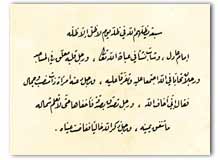 سبعة يظلهم الله في ظله يوم لا ظل إلا ظله
إمام عادل، وشاب نشأ في عبادة الله تعالى، ورجل قلبه معلق في المساجد
ورجلان تحابا في الله اجتمعا عليه وتفرقا عليه، ورجل دعته امرأة ذات منصب وجمال
فقال إني أخاف الله، ورجل تصدق بصدقة فأخفاها حتى لا تعلم شماله
ما تنفق يمينه، ورجل ذكر الله خاليا ففاضت عيناه.